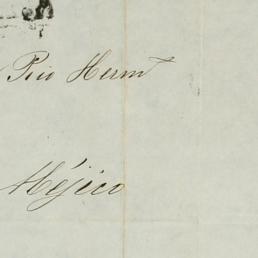 Pio Herm
Méjico